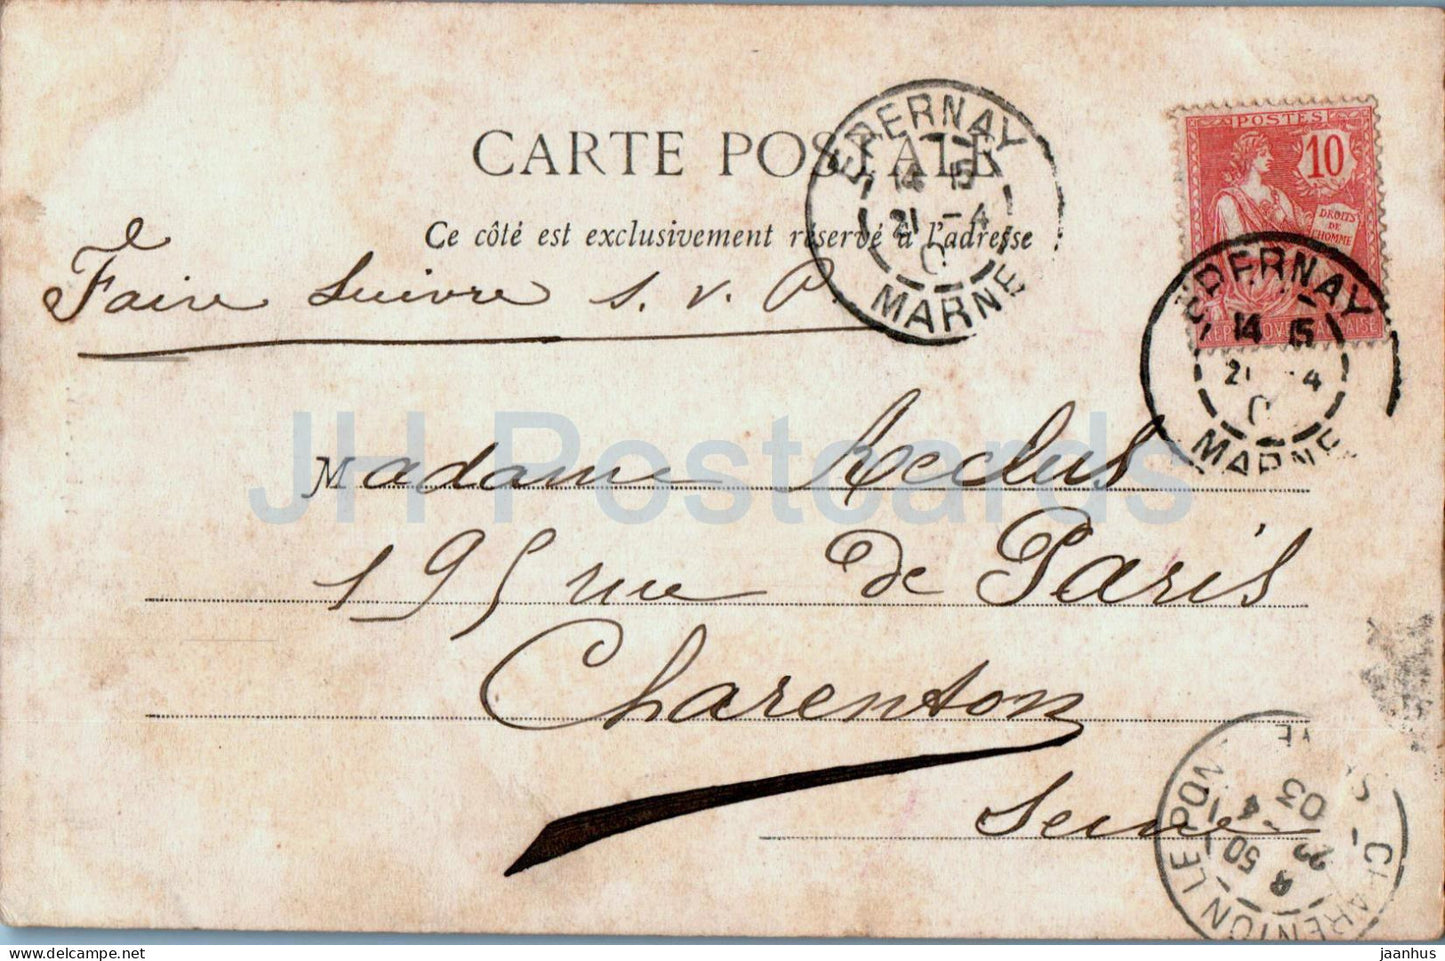 CARTE POSTALE
Ce côté est exclusivement réservé à l'adresse
Faire Suivre S. V. P.
Madame Reclus
195 rue de Paris
Charenton
Seine
POSTES
10
DROITS
DE
L'HOMME
REPUBLIQUE FRANÇAISE
EPERNAY
14 15
21 -4
0
MARNE
EPERNAY
14 15
21 -4
0
MARNE
CHARENTON LE PONT
50
22 -4
03
JH Postcards
jaanhus